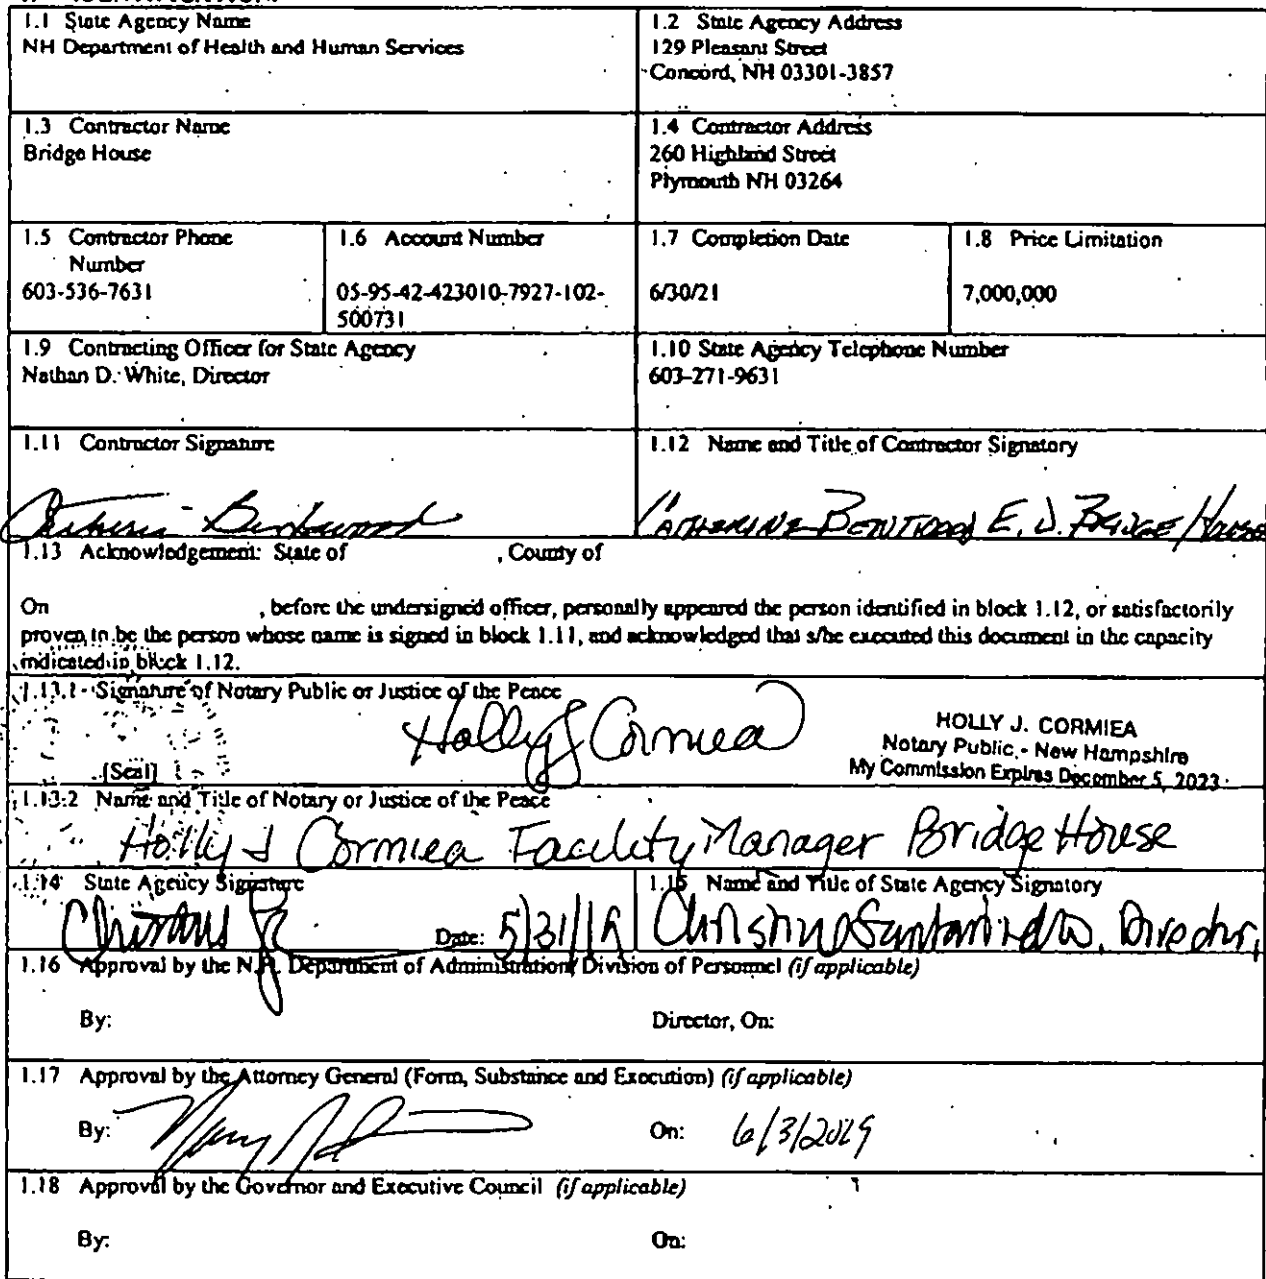 1.1 State Agency Name
NH Department of Health and Human Services
1.2 State Agency Address
129 Pleasant Street
Concord, NH 03301-3857
1.3 Contractor Name
Bridge House
1.4 Contractor Address
260 Highland Street
Plymouth NH 03264
1.5 Contractor Phone
Number
603-536-7631
1.6 Account Number
05-95-42-423010-7927-102-
500731
1.7 Completion Date
6/30/21
1.8 Price Limitation
7,000,000
1.9 Contracting Officer for State Agency
Nathan D. White, Director
1.10 State Agency Telephone Number
603-271-9631
1.11 Contractor Signature
1.12 Name and Title of Contractor Signatory
Catherine Bentwood E.D. Bridge House
1.13 Acknowledgement: State of , County of
On , before the undersigned officer, personally appeared the person identified in block 1.12, or satisfactorily
proven to be the person whose name is signed in block 1.11, and acknowledged that s/he executed this document in the capacity
indicated in block 1.12.
1.13.1 Signature of Notary Public or Justice of the Peace
Holly J Cormiea
HOLLY J. CORMIEA
Notary Public - New Hampshire
My Commission Expires December 5, 2023
[Seal]
1.13.2 Name and Title of Notary or Justice of the Peace
Holly J Cormiea Facility Manager Bridge House
1.14 State Agency Signature
Date: 5/31/19
1.15 Name and Title of State Agency Signatory
Christine Santaniello, Director,
1.16 Approval by the N.H. Department of Administration, Division of Personnel (if applicable)
By: Director, On:
1.17 Approval by the Attorney General (Form, Substance and Execution) (if applicable)
By: On: 6/3/2019
1.18 Approval by the Governor and Executive Council (if applicable)
By: On: